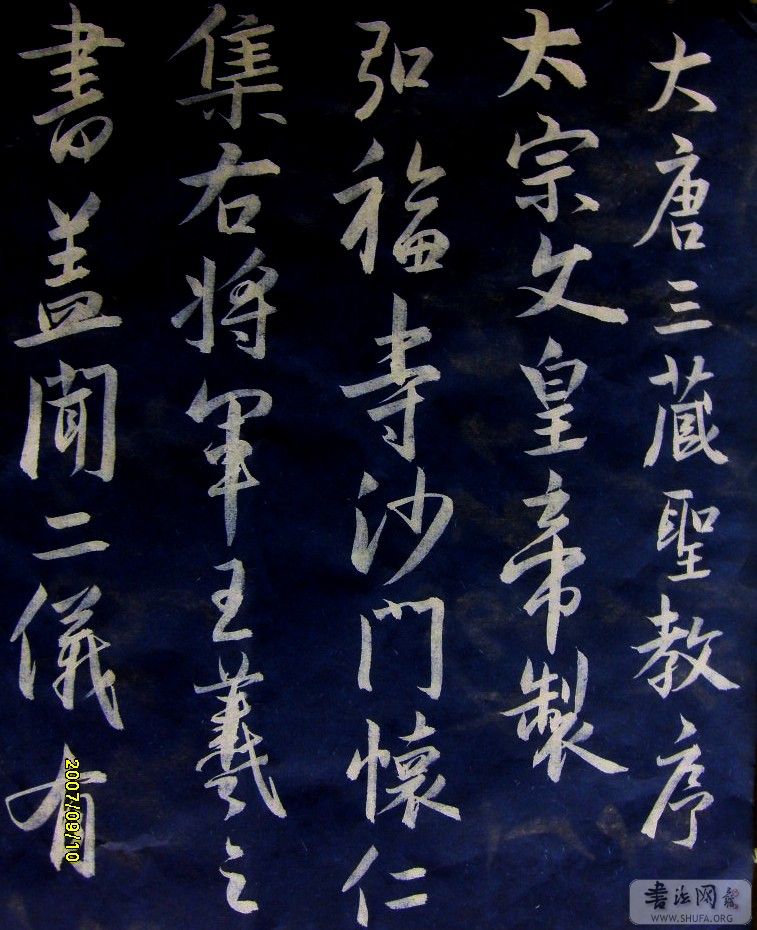 大唐三藏聖教序
太宗文皇帝製
弘福寺沙門懷仁
集右將軍王羲之
書盖聞二儀有
2007/09/10
書法网
WWW.SHUFA.ORG